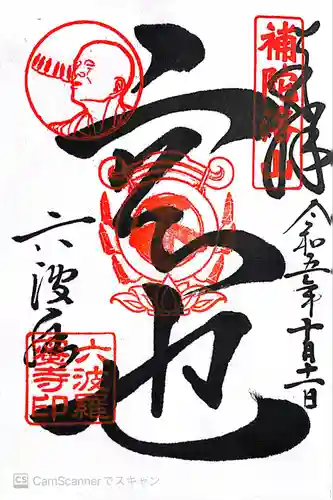 奉拝
補陀洛山
令和五年十月十一日
空也
六波羅
六波羅
蜜寺印
CS CamScannerでスキャン